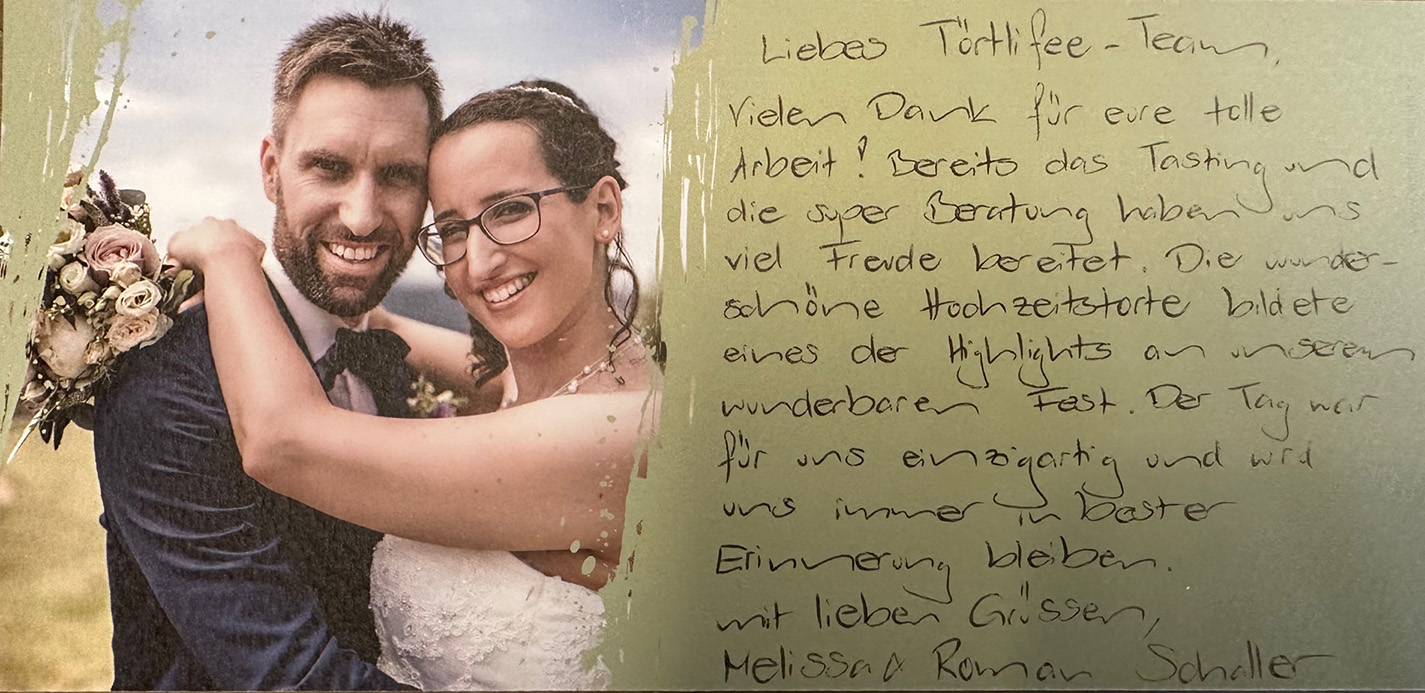 Liebes Törtlifee-Team,
Vielen Dank für eure tolle
Arbeit! Bereits das Tasting und
die super Beratung haben uns
viel Freude bereitet. Die wunder-
schöne Hochzeitstorte bildete
eines der Highlights an unserem
wunderbaren Fest. Der Tag war
für uns einzigartig und wird
uns immer in bester
Erinnerung bleiben.
mit lieben Grüssen,
Melissa & Roman Schaller